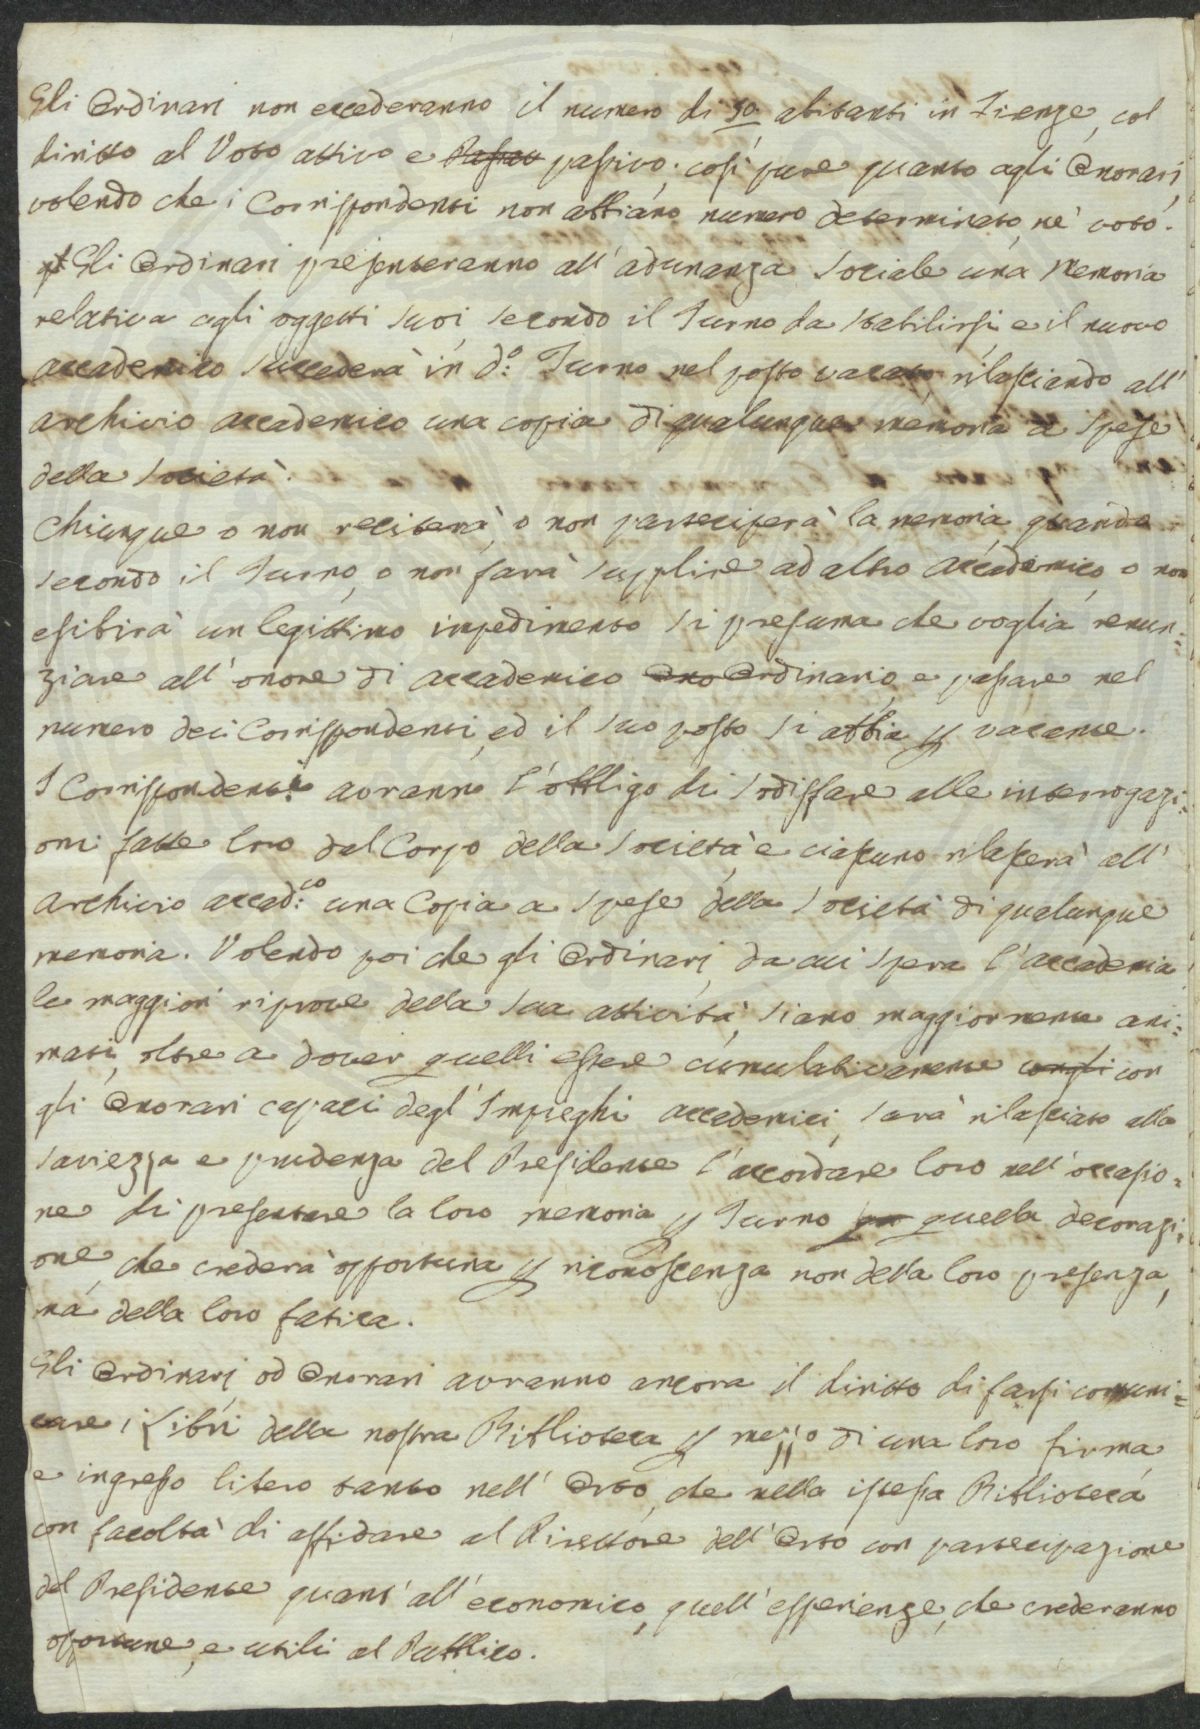 Gli Ordinari non eccederanno il numero di 50. abitanti in Firenze, col
diritto al Voto attivo e passivo; così pure quanto agli Onorari,
volendo che i Corrispondenti non abbiano numero determinato, nè voto.
Gli Ordinari presenteranno all'adunanza Sociale una Memoria
relativa agli oggetti suoi secondo il Turno da stabilirsi, e il nuovo
Accademico succederà in d.o Turno nel posto vacato rilasciando all'
Archivio Accademico una copia di qualunque memoria a spese
della Società.
Chiunque o non reciterà, o non parteciperà la memoria quando
secondo il Turno, o non farà supplire ad altro Accademico, o non
esibirà un legittimo impedimento si presuma che voglia renun=
ziare all'onore di Accademico Ono Ordinario, e passare nel
numero dei Corrispondenti, ed il suo posto si abbia p vacante.
I Corrispondenti avranno l'obbligo di sodisfare alle interrogazi=
oni fatte loro dal Corpo della Società, e ciascuno rilascerà all'
Archivio Accad:co una Copia a spese della Società di qualunque
memoria. Volendo poi che gli Ordinarj, da cui spera l'Accademia
le maggiori riprove della sua attività, siano maggiormente ani=
mati, oltre a dover quelli essere cumulativamente congli con
gli Onorari capaci degl'Impieghi Accademici, sarà rilasciato alla
saviezza e prudenza del Presidente l'accordare loro nell'occasio=
ne di presentare la loro memoria p Turno quella decorazi=
one, che crederà opportuna p riconoscenza non della loro presenza,
ma della loro fatica.
Gli Ordinarj, od Onorari avranno ancora il diritto di farsi comuni=
care i Libri della nostra Biblioteca p mezzo di una loro firma
e ingresso libero tanto nell'Orto, che nella istessa Biblioteca
con facoltà di affidare al Direttore dell'Orto con partecipazione
del Presidente quant'all'economico, quell'esperienze, che crederanno
oportune, e utili al Pubblico.